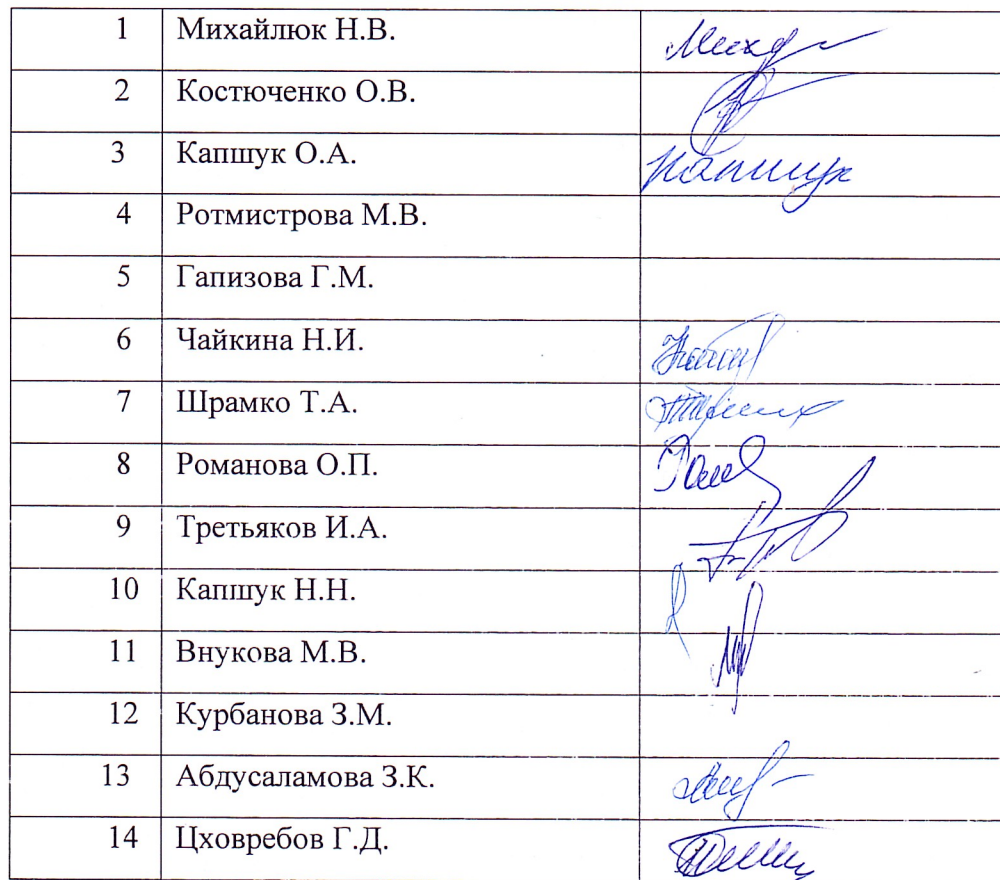 1 Михайлюк Н.В.
2 Костюченко О.В.
3 Капшук О.А. Капшук
4 Ротмистрова М.В.
5 Гапизова Г.М.
6 Чайкина Н.И.
7 Шрамко Т.А.
8 Романова О.П.
9 Третьяков И.А.
10 Капшук Н.Н.
11 Внукова М.В.
12 Курбанова З.М.
13 Абдусаламова З.К.
14 Цховребов Г.Д.